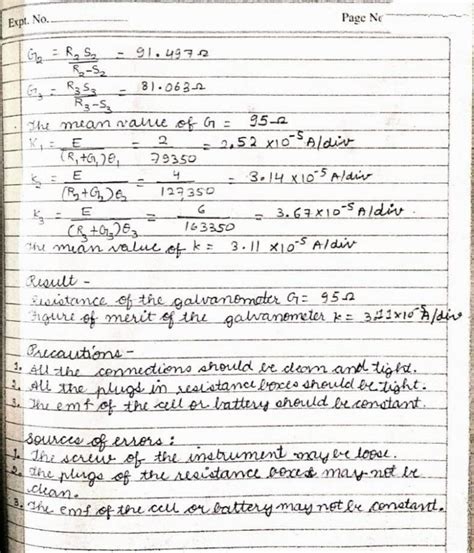 Expt. No.
Page No
G₂ = R₂S₂ / R₂-S₂ = 91.497Ω
G₃ = R₃S₃ / R₃-S₃ = 81.063Ω
The mean value of G = 95Ω
K₁ = E / (R₁+G₁)θ₁ = 2 / 79350 = 2.52 ×10⁻⁵ A/div
K₂ = E / (R₂+G₂)θ₂ = 4 / 127350 = 3.14 ×10⁻⁵ A/div
K₃ = E / (R₃+G₃)θ₃ = 6 / 163350 = 3.67×10⁻⁵ A/div.
The mean value of k = 3.11 ×10⁻⁵ A/div
Result -
Resistance of the galvanometer G = 95Ω
Figure of merit of the galvanometer k = 3.11×10⁻⁵ A/div
Precautions -
1. All the connections should be clean and tight.
2. All the plugs in resistance boxes should be tight.
3. The emf of the cell or battery should be constant.
Sources of errors :
1. The screw of the instrument may be loose.
2. The plugs of the resistance boxes may not be
clean.
3. The emf of the cell or battery may not be constant.